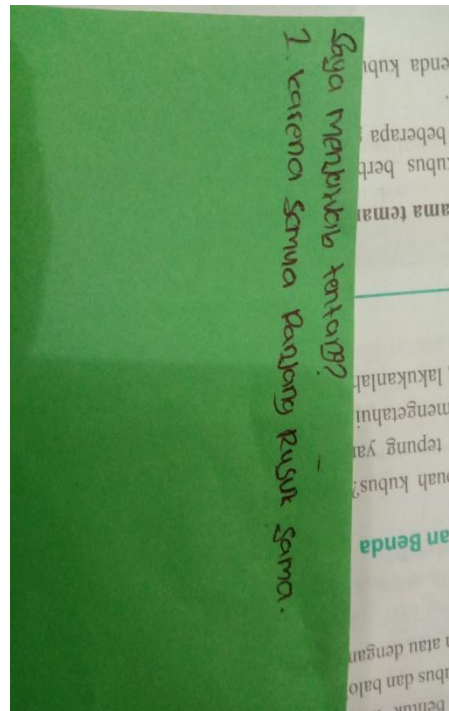 Saya menjawab tentang?
1. karena semua panjang rusuk sama.
enda kubu
beberapa
kubus berb
ama teman
lakukanlah
mengetahui
tepung ya
buah kubus?
an Benda
n atau dengan
bus dan balo
bentuk